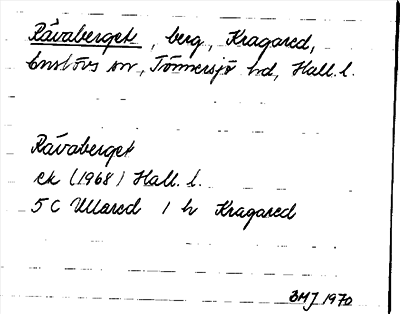 Råvaberget, berg, Kragared,
Enslövs sn, Tönnersjö hd, Hall. l.
Råvaberget
ek (1968) Hall. l.
5 C Ullared 1 h Kragared
BMJ 1970